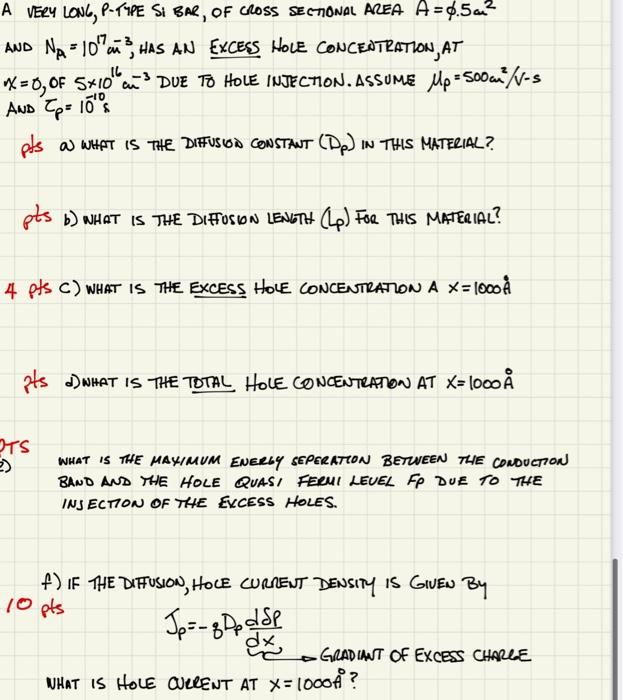 A VERY LONG, P-TYPE Si BAR, OF CROSS SECTIONAL AREA A=0.5cm²
AND N_A = 10¹⁷cm⁻³, HAS AN EXCESS HOLE CONCENTRATION, AT
x=0, OF 5×10¹⁶cm⁻³ DUE TO HOLE INJECTION. ASSUME μp=500cm²/V-s
AND τp= 10⁻¹⁰s
pts a) WHAT IS THE DIFFUSION CONSTANT (Dp) IN THIS MATERIAL?
pts b) WHAT IS THE DIFFUSION LENGTH (Lp) FOR THIS MATERIAL?
4 pts C) WHAT IS THE EXCESS HOLE CONCENTRATION A X=1000Å
pts d) WHAT IS THE TOTAL HOLE CONCENTRATION AT X=1000Å
PTS
e) WHAT IS THE MAXIMUM ENERGY SEPERATION BETWEEN THE CONDUCTION
BAND AND THE HOLE QUASI FERMI LEVEL Fp DUE TO THE
INJECTION OF THE EXCESS HOLES.
f) IF THE DIFFUSION, HOLE CURRENT DENSITY IS GIVEN BY
10 pts
Jp = -qDp dδp/dx
GRADIANT OF EXCESS CHARGE
WHAT IS HOLE CURRENT AT X=1000Å?